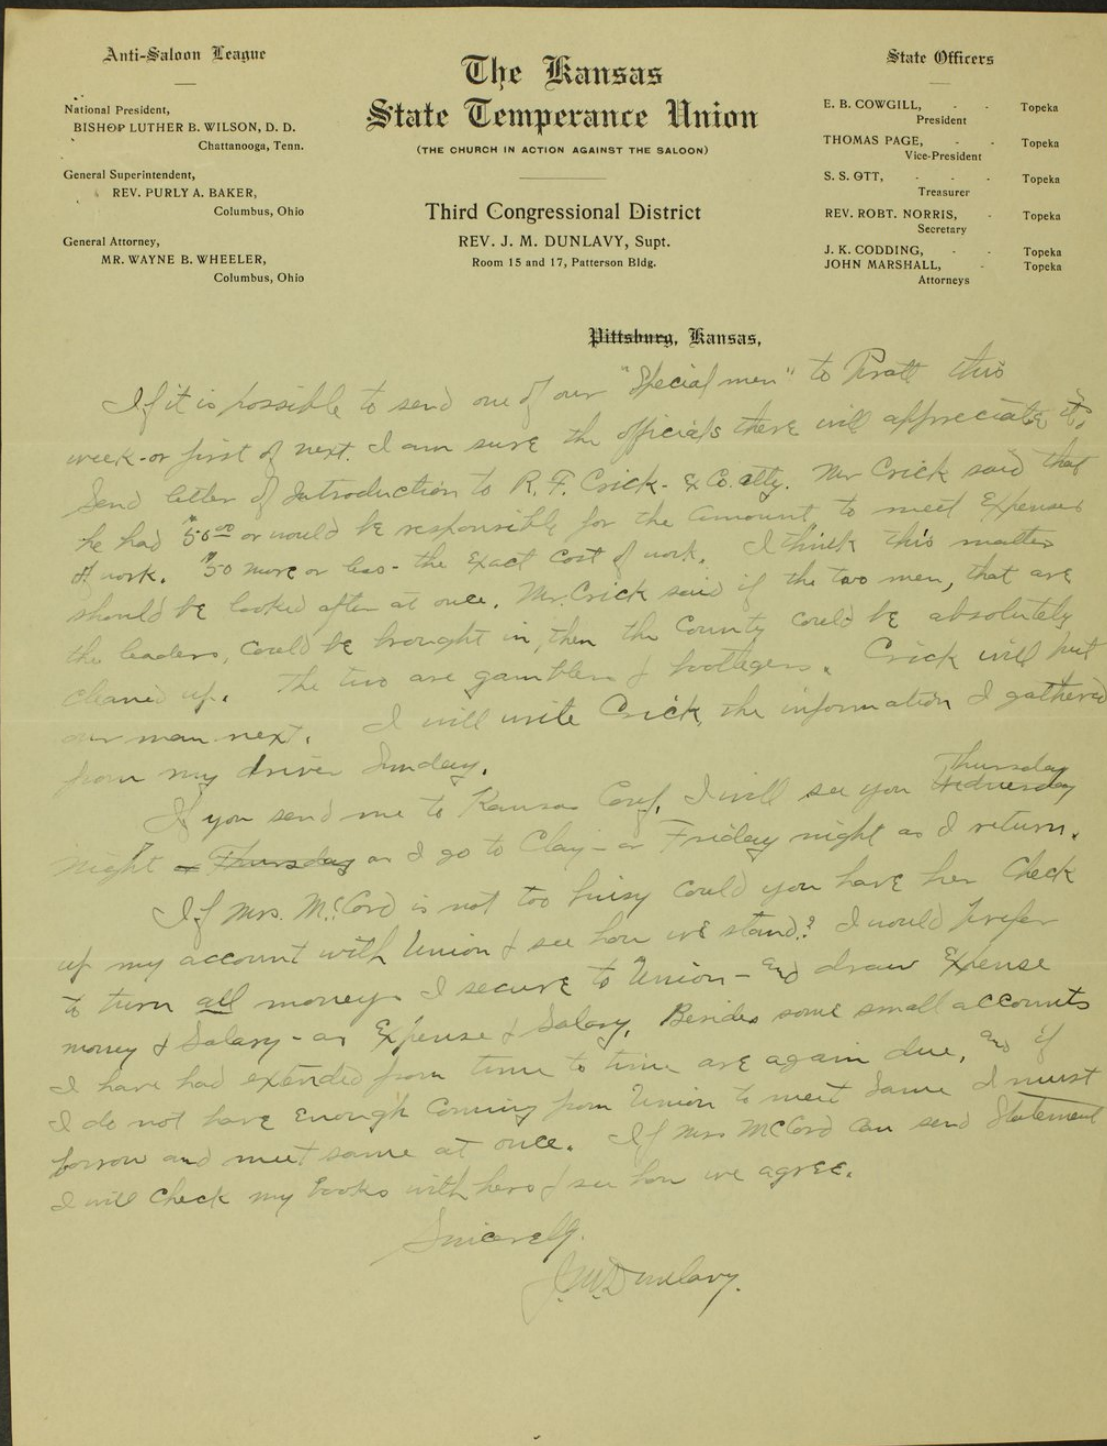 Anti-Saloon League
National President,
BISHOP LUTHER B. WILSON, D. D.
Chattanooga, Tenn.
General Superintendent,
REV. PURLY A. BAKER,
Columbus, Ohio
General Attorney,
MR. WAYNE B. WHEELER,
Columbus, Ohio
The Kansas
State Temperance Union
(THE CHURCH IN ACTION AGAINST THE SALOON)
Third Congressional District
REV. J. M. DUNLAVY, Supt.
Room 15 and 17, Patterson Bldg.
State Officers
E. B. COWGILL, - - Topeka
President
THOMAS PAGE, - - Topeka
Vice-President
S. S. OTT, - - - Topeka
Treasurer
REV. ROBT. NORRIS, - Topeka
Secretary
J. K. CODDING, - - Topeka
JOHN MARSHALL, - Topeka
Attorneys
Pittsburg, Kansas,
If it is possible to send one of our "Special men" to Pratt this
week - or first of next. I am sure the officials there will appreciate it.
Send letter of Introduction to R. F. Crick - Co. atty. Mr Crick said that
he had $50 00 or would be responsible for the amount to meet Expenses
of work. $50 more or less - the Exact cost of work. I think this matter
should be looked after at once. Mr. Crick said if the two men, that are
the leaders, could be brought in, then the County could be absolutely
cleaned up. The two are gamblers & bootlegers. Crick will put
our man next. I will write Crick the information I gathered
from my driver Sunday.
If you send me to Kansas Conf. I will see you Wednesday Thursday
night or Thursday as I go to Clay - or Friday night as I return.
If Mrs. McCord is not too buisy could you have her Check
up my account with Union & see how we stand? I would prefer
to turn all moneys I secure to Union - and draw Expense
money & Salary - as Expense & Salary. Besides some small accounts
I have had extended from time to time are again due, and if
I do not have Enough Coming from Union to meet Same I must
borrow and meet same at once. If Mrs McCord can send Statement
I will Check my books with hers & see how we agree.
Sincerely.
J. M. Dunlavy.